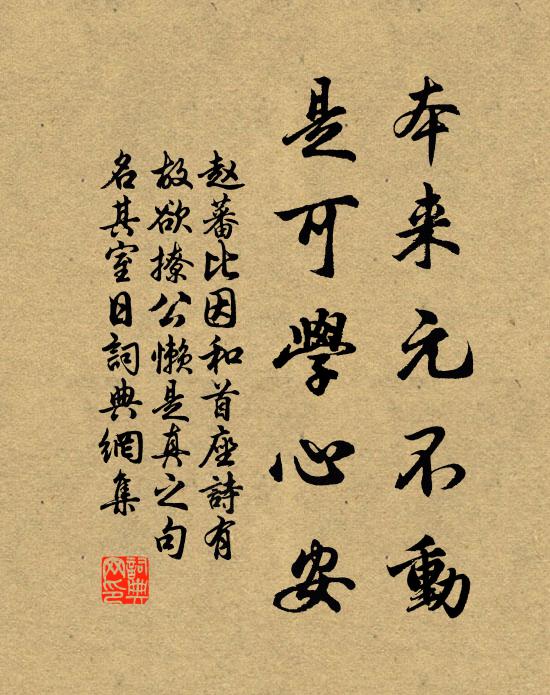 本来元不動
是可學心安
赵蕃比因和首座詩有
故欲撩公懶是真之句
名其室日詞典網集
詞典网印